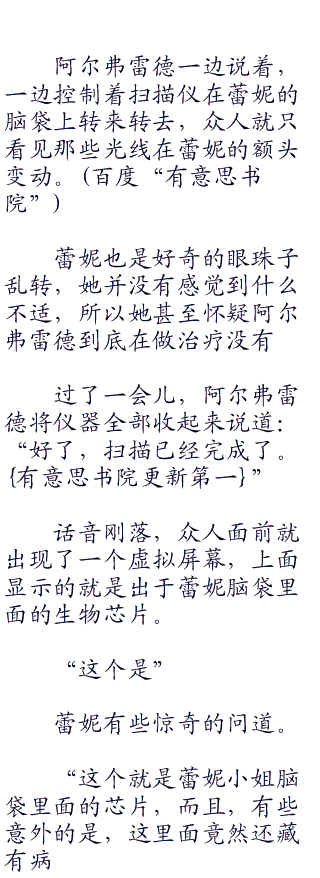 阿尔弗雷德一边说着，
一边控制着扫描仪在蕾妮的
脑袋上转来转去，众人就只
看见那些光线在蕾妮的额头
变动。(百度“有意思书
院”)
蕾妮也是好奇的眼珠子
乱转，她并没有感觉到什么
不适，所以她甚至怀疑阿尔
弗雷德到底在做治疗没有
过了一会儿，阿尔弗雷
德将仪器全部收起来说道：
“好了，扫描已经完成了。
{有意思书院更新第一}”
话音刚落，众人面前就
出现了一个虚拟屏幕，上面
显示的就是出于蕾妮脑袋里
面的生物芯片。
“这个是”
蕾妮有些惊奇的问道。
“这个就是蕾妮小姐脑
袋里面的芯片，而且，有些
意外的是，这里面竟然还藏
有病